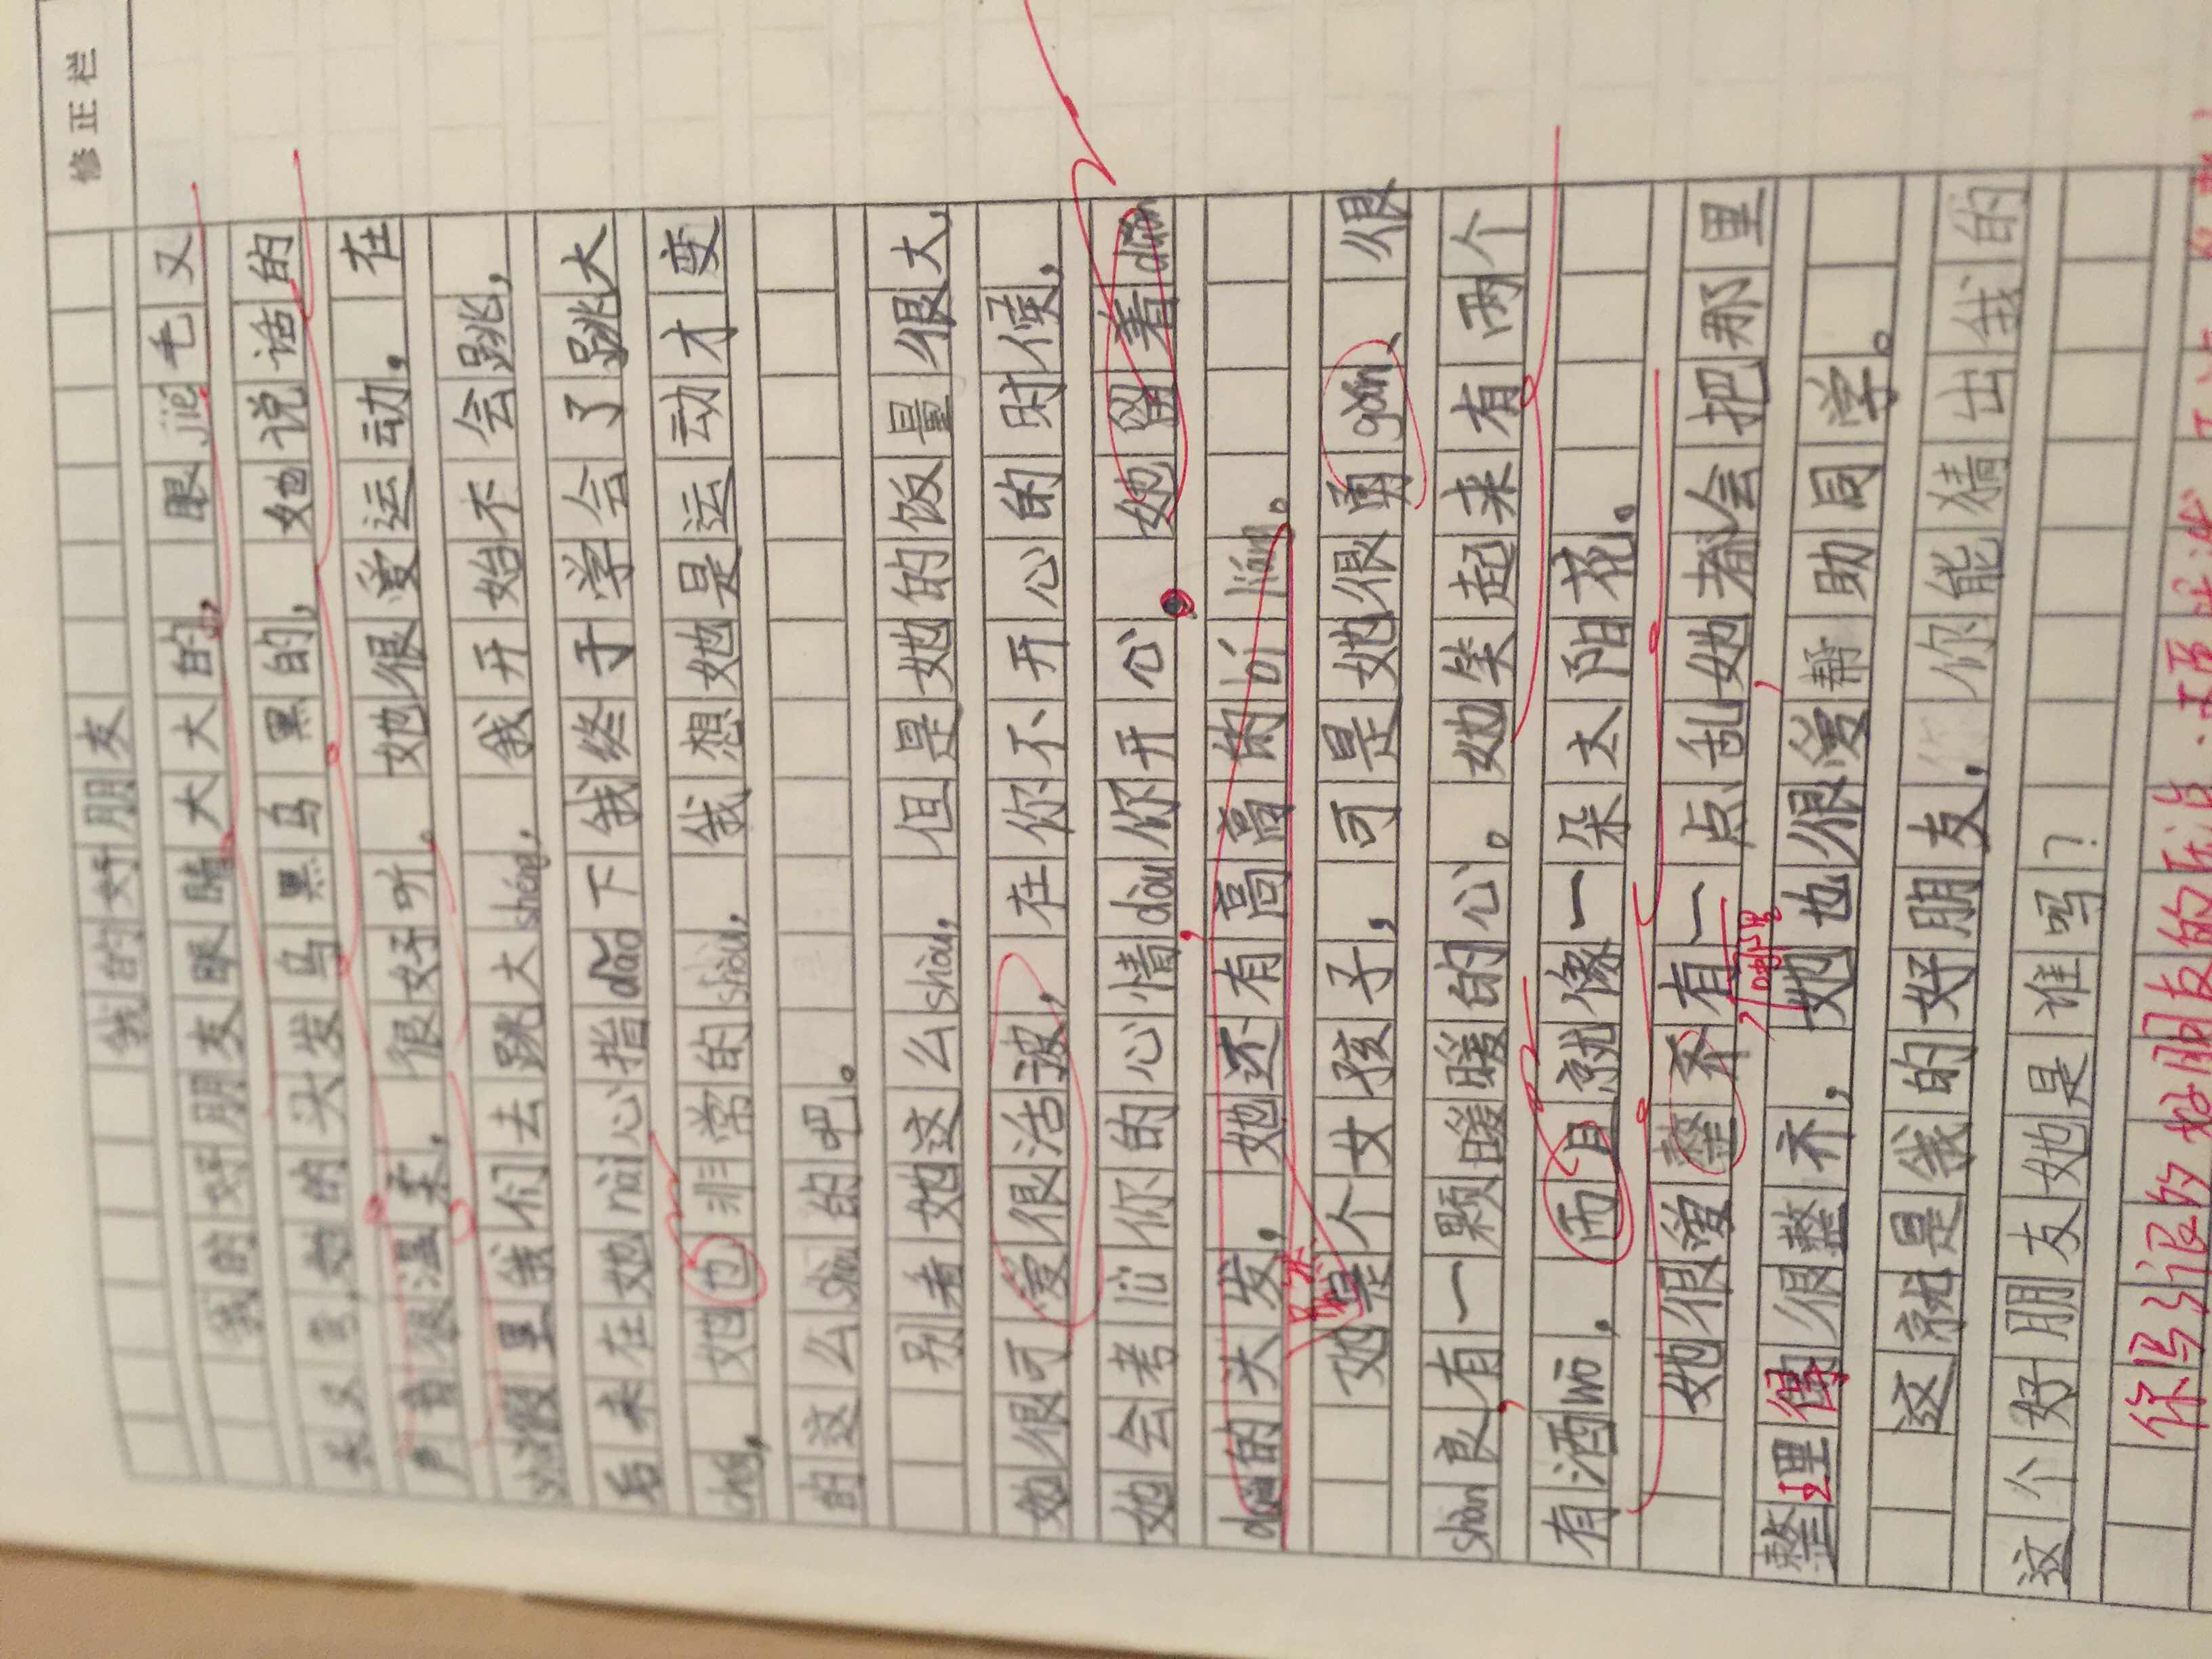 修正栏
我的好朋友
我的好朋友眼睛大大的，眼jié毛又
长又弯，她的头发乌黑乌黑的，她说话的
声音很温柔，很好听。她很爱运动。在
shǔ假里我们去跳大shéng，我开始不会跳，
后来在她nài心指dǎo下我终于学会了跳大
shéng，她也非常的shòu，我想她是运动才变
的这么shòu的吧。
别看她这么shòu，但是她的饭量很大，
她很可爱很活波，在你不开心的时候，
她会考lǜ你的心情dòu你开心。她留着duǎn
duǎn的头发，她还有高高的bí liáng。
她虽然是个女孩子，可是她很勇gǎn、很
shàn良，有一颗暖暖的心。她笑起来有两个
有酒wō，而且就像一朵太阳花。
她很爱整齐有一点乱，她都会把那里
整理得很整齐，她也很爱帮助同学。
这就是我的好朋友，你能猜出我的
这个好朋友她是谁吗？